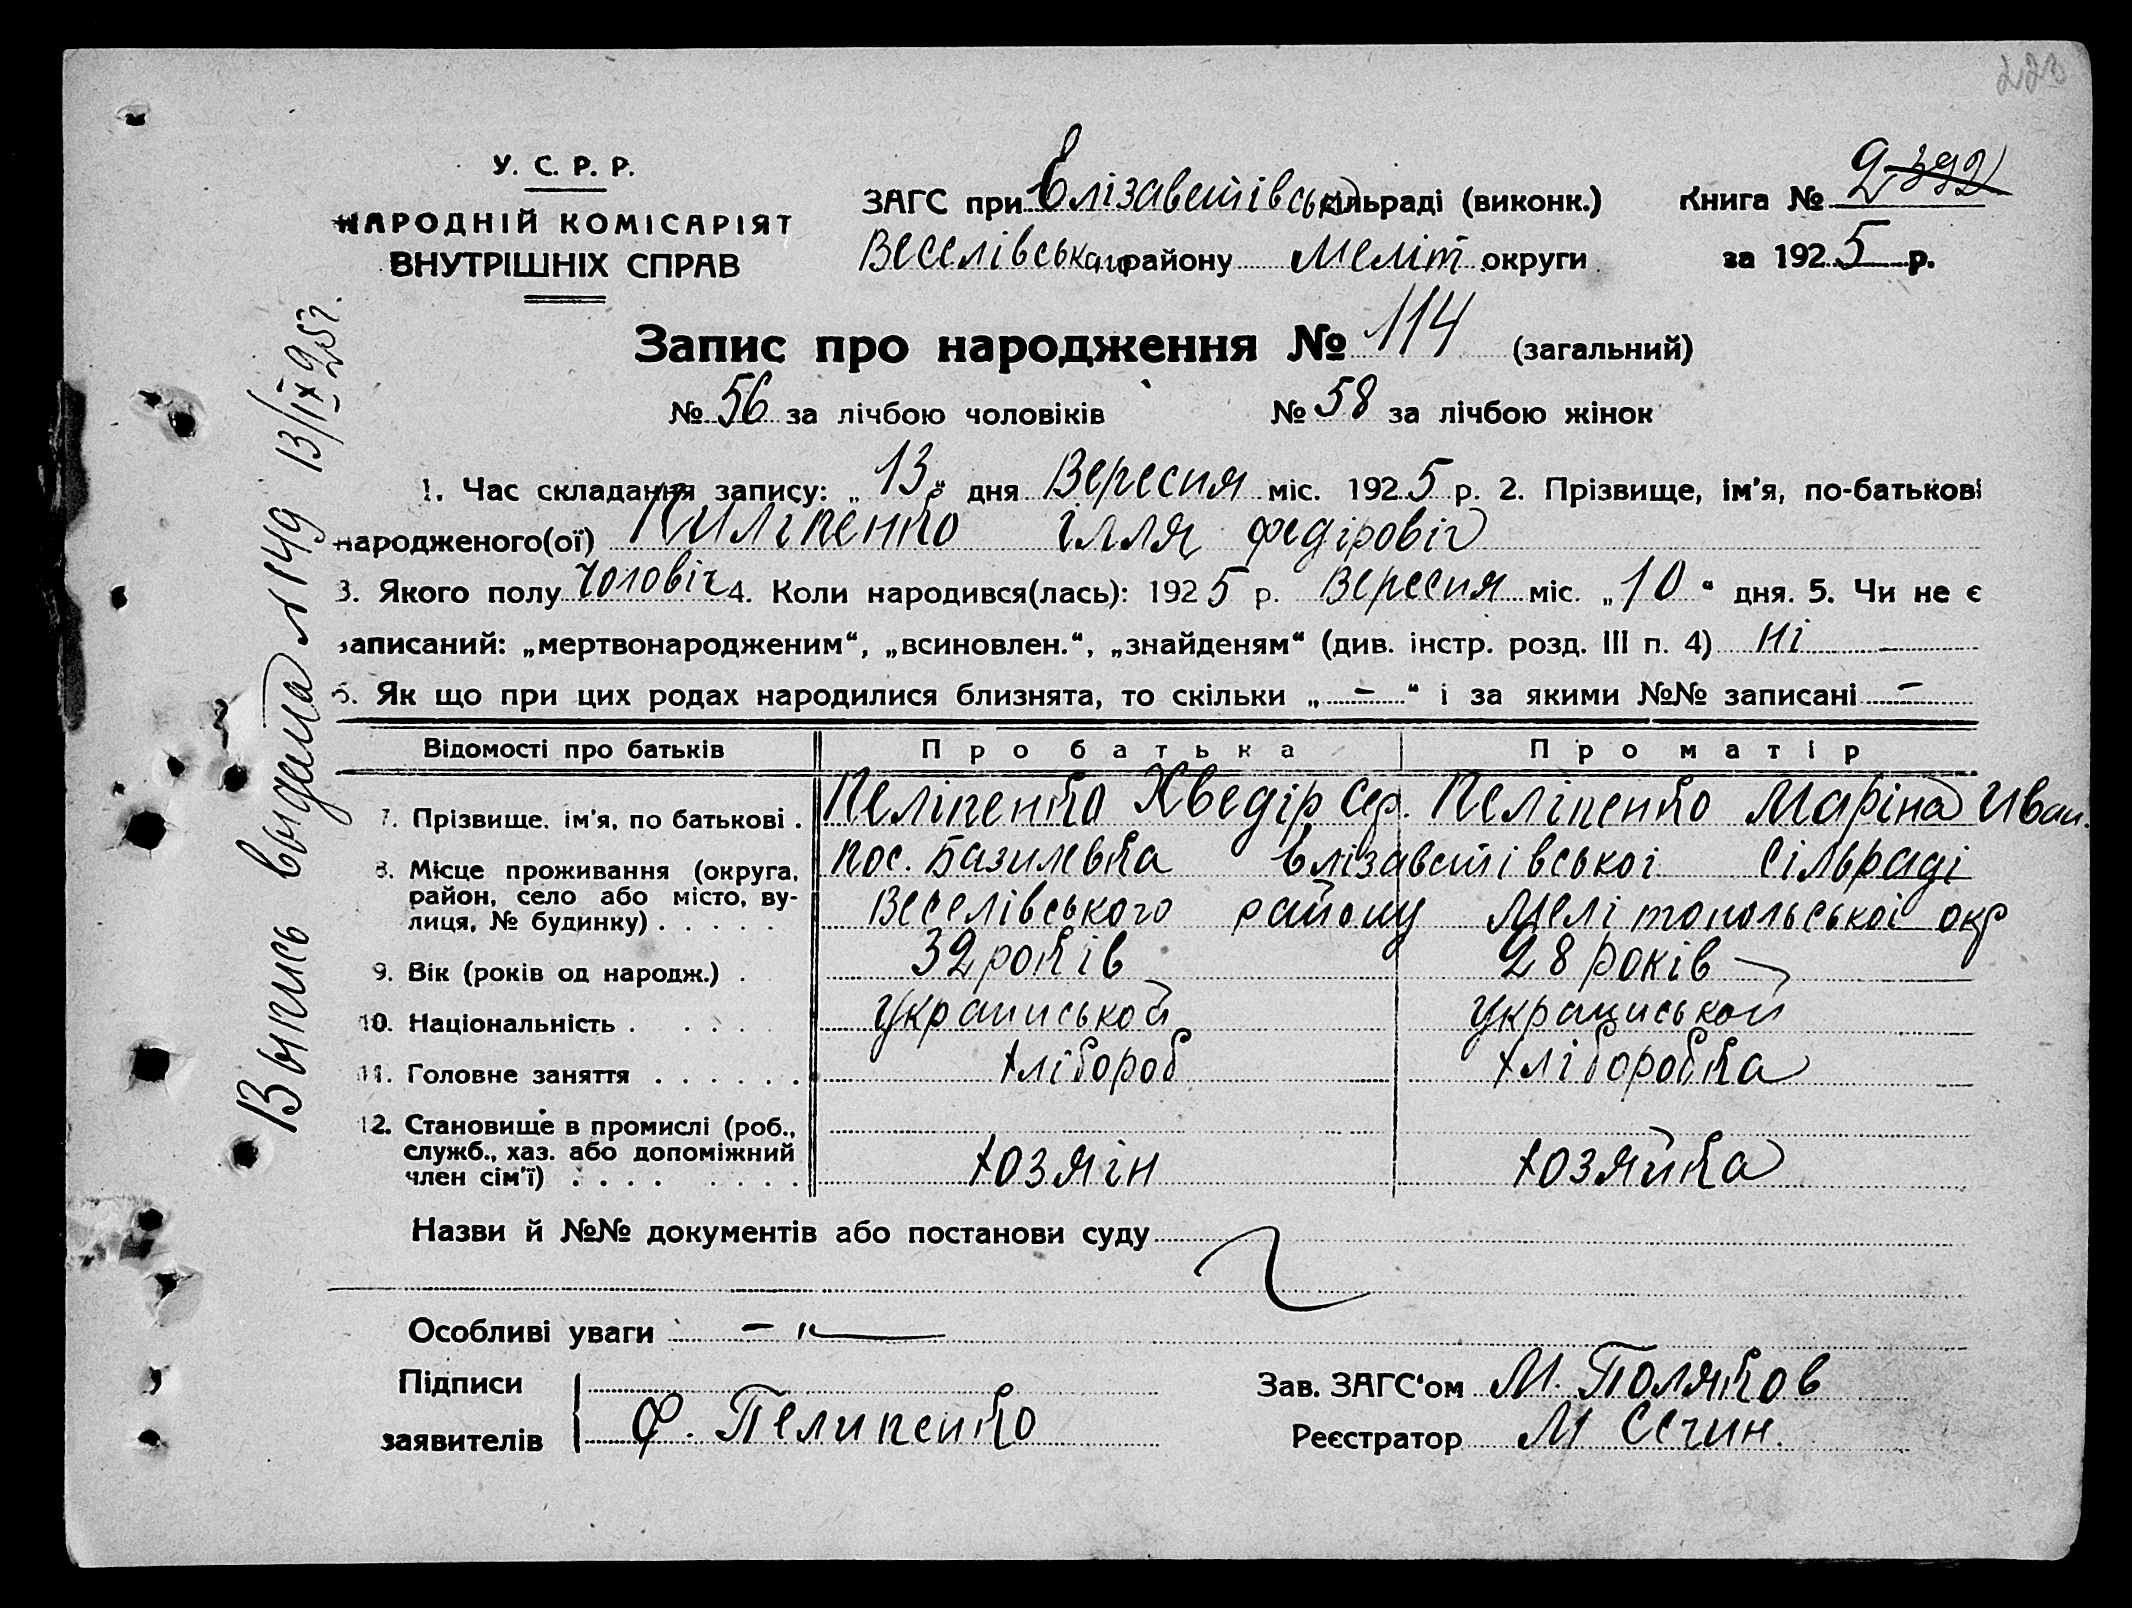 223
У. С. Р. Р.
НАРОДНІЙ КОМІСАРІЯТ
ВНУТРІШНІХ СПРАВ
ЗАГС при Елізаветівськ сільраді (виконк.)
Веселівського району Меліт округи
Книга № 2 392
за 1925 р.
Запис про народження № 114 (загальний)
№ 56 за лічбою чоловіків № 58 за лічбою жінок
1. Час складання запису: „13“ дня Вересня міс. 1925 р. 2. Прізвище, ім'я, по-батькові
народженого(ої) Пиліпенко Ілля Федіровіч
3. Якого полу Чоловіч 4. Коли народився(лась): 1925 р. Вересня міс. „10“ дня. 5. Чи не є
записаний: „мертвонародженим“, „всиновлен.“, „знайденям“ (див. інстр. розд. III п. 4) Ні
6. Як що при цих родах народилися близнята, то скільки „ – “ і за якими №№ записані –
Відомості про батьків Про батька Про матір
7. Прізвище, ім'я, по батькові . Пеліпенко Хведір Сер. Пеліпенко Маріна Иван.
8. Місце проживання (округа, пос. Базилевка Елізаветівськоі сільраді
район, село або місто, ву-
лиця, № будинку) . . . . . Веселівського району Мелітопольськоі окр
9. Вік (років од народж.) . 32 років 28 років
10. Національність . . . . . украиньской украиньской
11. Головне заняття . . . . . . хлібороб хлібороб­ка
12. Становище в промислі (роб.,
служб., хаз. або допоміжний
член сім'ї) . . . . . . . . хозяін хозяйка
Назви й №№ документів або постанови суду
Особливі уваги – „ –
Підписи
заявителів Ф. Пелипенко
Зав. ЗАГС'ом М. Поляков
Реєстратор М Сечин.
Выпись выдана № 149 13/IX 25 г.